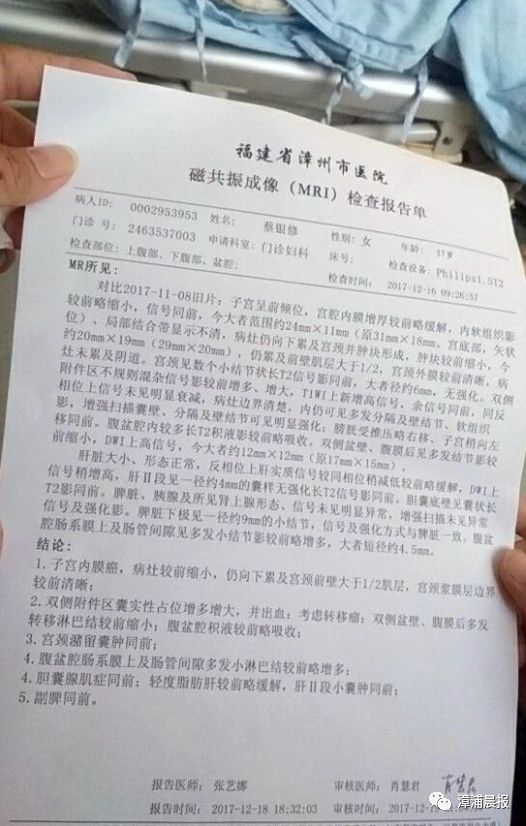 福建省漳州市医院
磁共振成像（MRI）检查报告单
病人ID: 0002953953 姓名: 蔡银修 性别: 女 年龄: 57岁
门诊号 2463537003 申请科室: 门诊妇科 床号: 检查设备: Philips1.5T2
检查部位: 上腹部、下腹部、盆腔; 检查时间: 2017-12-16 09:26:52
MR所见:
对比2017-11-08旧片: 子宫呈前倾位，宫腔内膜增厚较前略缓解，内软组织影
较前略缩小，信号同前，今大者范围约24mm×11mm（原31mm×18mm、宫底部，矢状
位）、局部结合带显示不清，病灶仍向下累及宫颈并肿块形成，肿块较前缩小，今
约20mm×19mm（29mm×20mm），仍累及前壁肌层大于1/2，宫颈外膜较前清晰，病
灶未累及阴道。宫颈见数个小结节状长T2信号影同前，大者径约6mm，无强化。双侧
附件区不规则混杂信号影较前增多、增大，T1WI上新增高信号，余信号同前，同反
相位上信号未见明显衰减，病灶边界清楚，内仍可见多发分隔及壁结节、软组织
影，增强扫描囊壁、分隔及壁结节可见明显强化；膀胱受推压略右移、子宫稍向左
移同前。腹盆腔内较多长T2积液影较前略吸收。双侧盆壁、腹膜后见多发结节影较
前缩小，DWI上高信号，今大者约12mm×12mm（原17mm×15mm）。
肝脏大小、形态正常，反相位上肝实质信号较同相位稍减低较前略缓解，DWI上
信号稍增高，肝Ⅱ段见一径约4mm的囊样无强化长T2信号影同前。胆囊底壁见囊状长
T2影同前。脾脏、胰腺及所见肾上腺形态、信号未见明显异常，增强扫描未见异常
信号及强化影。脾脏下极见一径约9mm的小结节，信号及强化方式与脾脏一致。腹盆
腔肠系膜上及肠管间隙见多发小结节影较前略增多，大者短径约4.5mm。
结论:
1. 子宫内膜癌，病灶较前缩小，仍向下累及宫颈前壁大于1/2肌层，宫颈浆膜层边界
较前清晰；
2. 双侧附件区囊实性占位增多增大，并出血：考虑转移瘤；双侧盆壁、腹膜后多发
转移淋巴结较前缩小；腹盆腔积液较前略吸收；
3. 宫颈潴留囊肿同前；
4. 腹盆腔肠系膜上及肠管间隙多发小淋巴结较前略增多；
4. 胆囊腺肌症同前；轻度脂肪肝较前略缓解，肝Ⅱ段小囊肿同前；
5. 副脾同前。
报告医师: 张艺娜 审核医师: 肖慧君
报告时间: 2017-12-18 18:32:03 审核时间: 2017-12-1
漳浦晨报